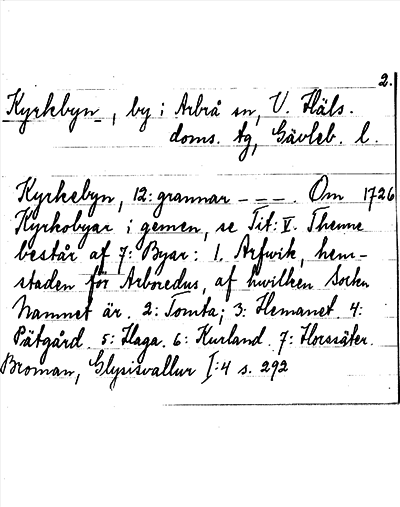 2.
Kyrkbyn, by i Arbrå sn, V. Häls.
doms. tg, Gävleb. l.
Kyrkebyn, 12: grannar - - - . Om 1726
Kyrkobyar i gemen, se Tit: V. Thenne
består af 7: Byar: 1. Arfwik, hem-
staden för Arboredus, af hwilken Sockn
Namnet är. 2: Tomta; 3: Hemanet. 4:
Pätgård. 5: Haga. 6: Kurland. 7: Horssäter.
Broman, Glysisvallur I:4 s. 292